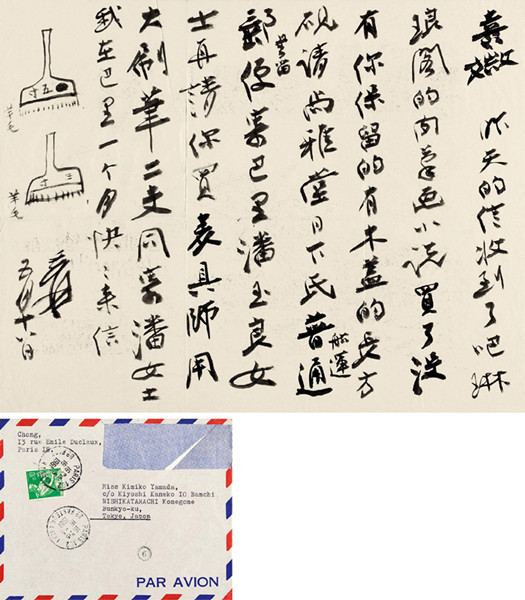 昨天的信收到了吧琳
琅閣的肉筆画小說買了沒
有你保留的有木蓋的長方
硯請尚雅堂日下氏普通
船運
郵便寄巴里潘玉良女
士再請你買表具師用
大刷筆二支同寄潘女士
我在巴里一个月快〻来信
爰
五月十八日
寸五
羊毛
寸三
羊毛
Chang,
13 rue Emile Duclaux,
Paris 15.
Miss Kimiko Yamada,
c/o Kiyoshi Kaneko 10 Banchi
NISHIKATAMACHI Komagome
Bunkyo-ku,
Tokyo, Japon
PAR AVION